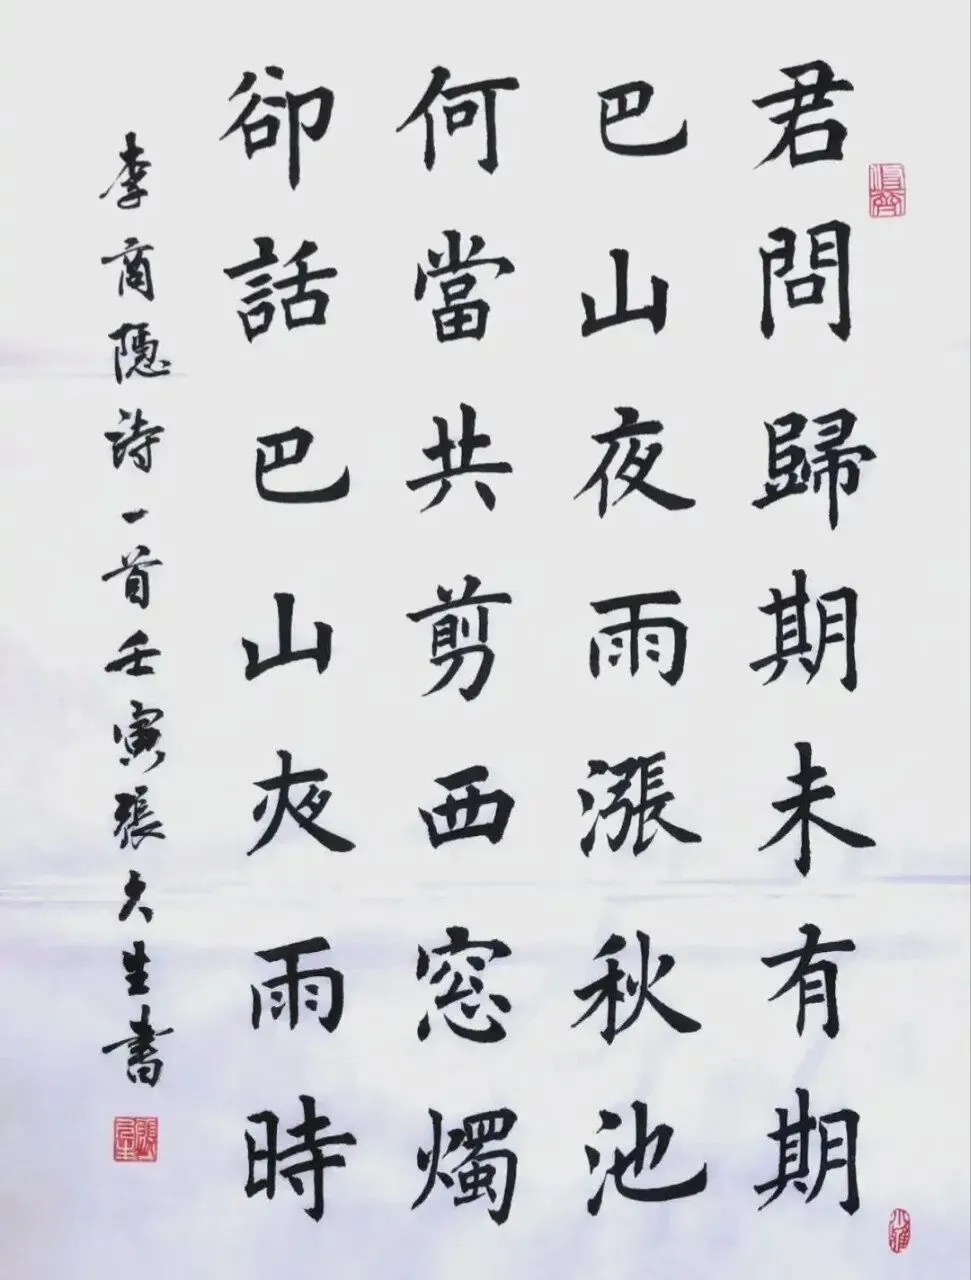 君問歸期未有期
巴山夜雨漲秋池
何當共剪西窓燭
卻話巴山夜雨時
李商隱詩一首壬寅張大生書